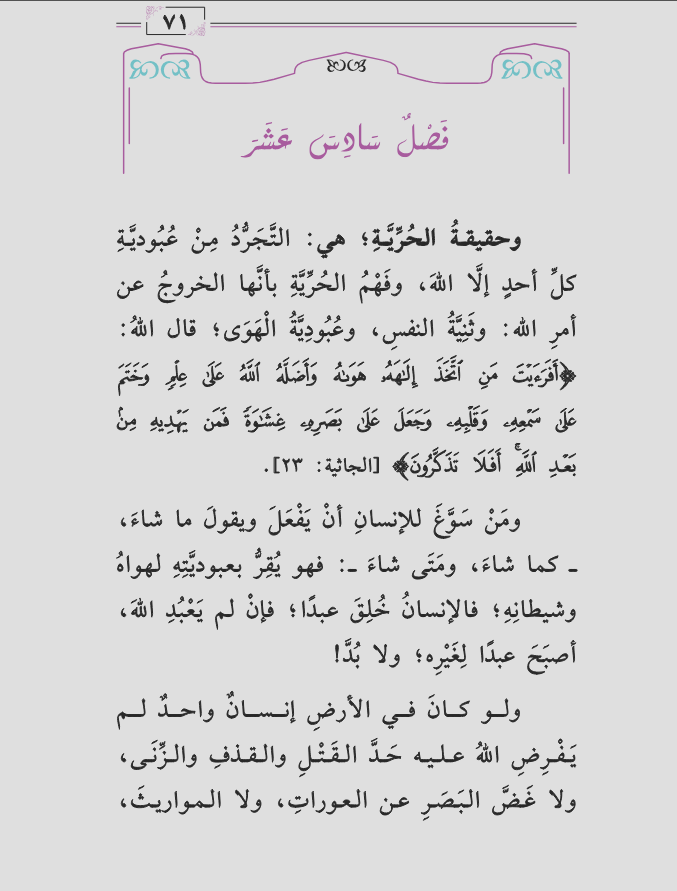 ٧١
فَصْلٌ سَادِسَ عَشَرَ
وحقيقةُ الحُرِّيَّةِ؛ هي: التَّجَرُّدُ مِنْ عُبُوديَّةِ
كلِّ أحدٍ إلَّا اللهَ، وفَهْمُ الحُرِّيَّةِ بأنَّها الخروجُ عن
أمرِ الله: وثَنِيَّةُ النفسِ، وعُبُودِيَّةُ الْهَوَى؛ قال اللهُ:
﴿أَفَرَءَيْتَ مَنِ ٱتَّخَذَ إِلَٰهَهُۥ هَوَىٰهُ وَأَضَلَّهُ ٱللَّهُ عَلَىٰ عِلْمٍ وَخَتَمَ
عَلَىٰ سَمْعِهِۦ وَقَلْبِهِۦ وَجَعَلَ عَلَىٰ بَصَرِهِۦ غِشَٰوَةً فَمَن يَهْدِيهِ مِنۢ
بَعْدِ ٱللَّهِ ۚ أَفَلَا تَذَكَّرُونَ﴾ [الجاثية: ٢٣].
ومَنْ سَوَّغَ للإنسانِ أنْ يَفْعَلَ ويقولَ ما شاءَ،
ـ كما شاءَ، ومَتَى شاءَ ـ: فهو يُقِرُّ بعبوديَّتِهِ لهواهُ
وشيطانِهِ؛ فالإنسانُ خُلِقَ عبدًا؛ فإنْ لم يَعْبُدِ اللهَ،
أصبَحَ عبدًا لِغَيْرِه؛ ولا بُدَّ!
ولو كانَ في الأرضِ إنسانٌ واحدٌ لم
يَفْرِضِ اللهُ عليه حَدَّ القَتْلِ والقذفِ والزِّنَى،
ولا غَضَّ البَصَرِ عن العوراتِ، ولا المواريثَ،